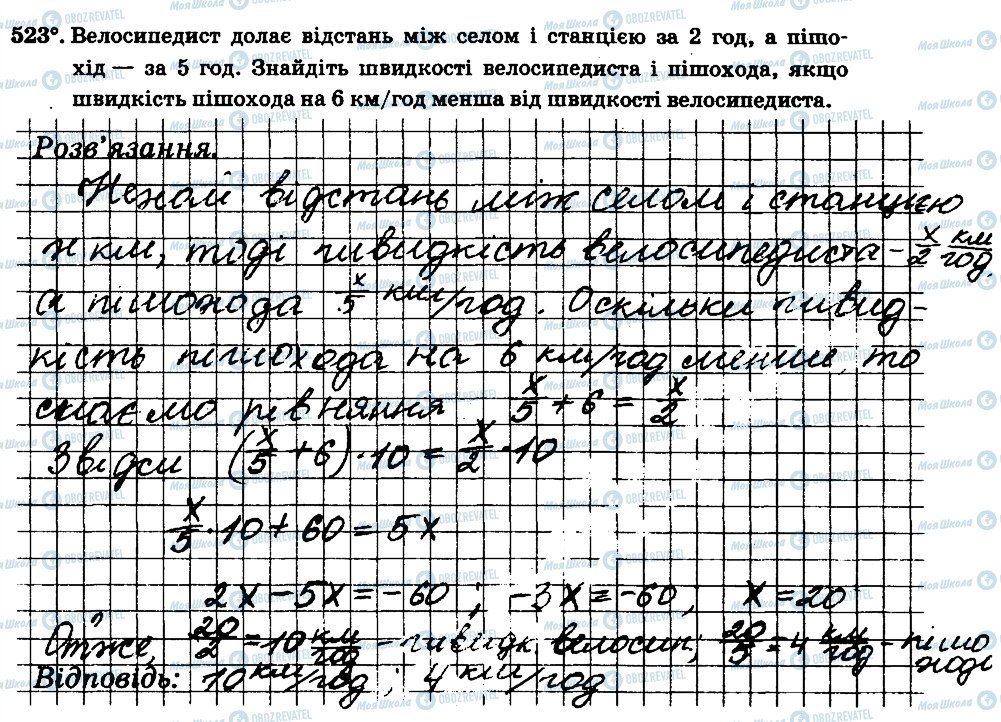 523°. Велосипедист долає відстань між селом і станцією за 2 год, а пішо-
хід — за 5 год. Знайдіть швидкості велосипедиста і пішохода, якщо
швидкість пішохода на 6 км/год менша від швидкості велосипедиста.
Розв'язання.
Нехай відстань між селом і станцією
x км, тоді швидкість велосипедиста - x/2 км/год,
а пішохода x/5 км/год. Оскільки швид-
кість пішохода на 6 км/год менше, то
маємо рівняння x/5 + 6 = x/2
Звідси (x/5 + 6) · 10 = x/2 · 10
x/5 · 10 + 60 = 5x
2x - 5x = -60 ; -3x = -60 ; x = 20
Отже, 20/2 = 10 км/год - швидк. велосип; 20/5 = 4 км/год - пішо
ході
Відповідь: 10 км/год ; 4 км/год